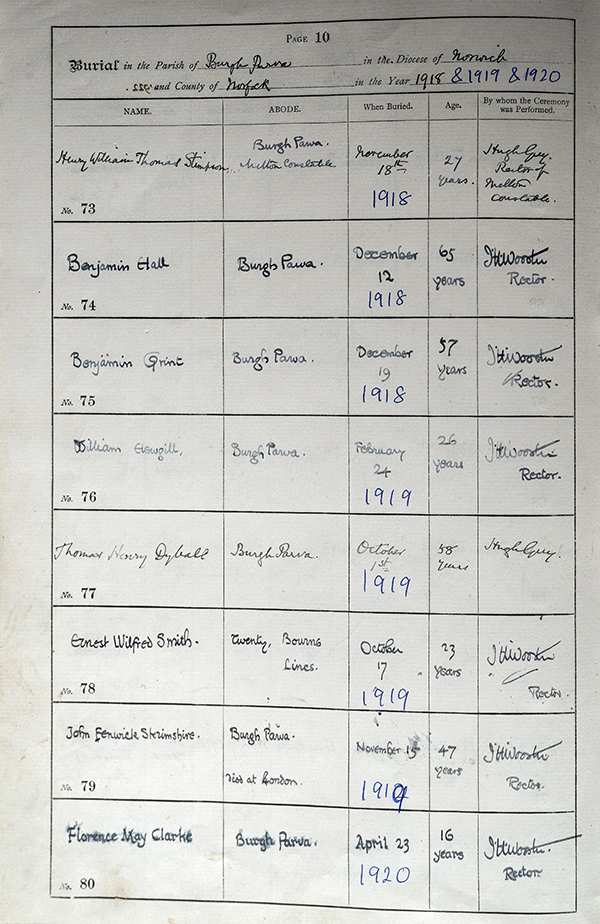 PAGE 10
Burial in the Parish of Burgh Parva in the Diocese of Norwich
and County of Norfolk in the Year 1918 & 1919 & 1920
NAME. ABODE. When Buried. Age. By whom the Ceremony was Performed.
Henry William Thomas Stimpson
No. 73
Burgh Parva.
Melton Constable
November
18th
1918
27
years.
Hugh Guy.
Rector of
Melton
Constable.
Benjamin Hall
No. 74
Burgh Parva.
December
12
1918
65
years
Rector.
Benjamin Grint
No. 75
Burgh Parva.
December
19
1918
57
years
Rector.
William
No. 76
Burgh Parva.
February
24
1919
26
years
Rector.
Thomas Henry Dyball
No. 77
Burgh Parva.
October
1st
1919
58
years
Hugh Guy.
Ernest Wilfred Smith.
No. 78
Twenty, Bourne
Lincs.
October
17
1919
23
years
Rector.
John Fenwick Skrimshire.
No. 79
Burgh Parva.
Died at London.
November 15
1919
47
years
Rector.
Florence May Clarke
No. 80
Burgh Parva.
April 23
1920
16
years
Rector.